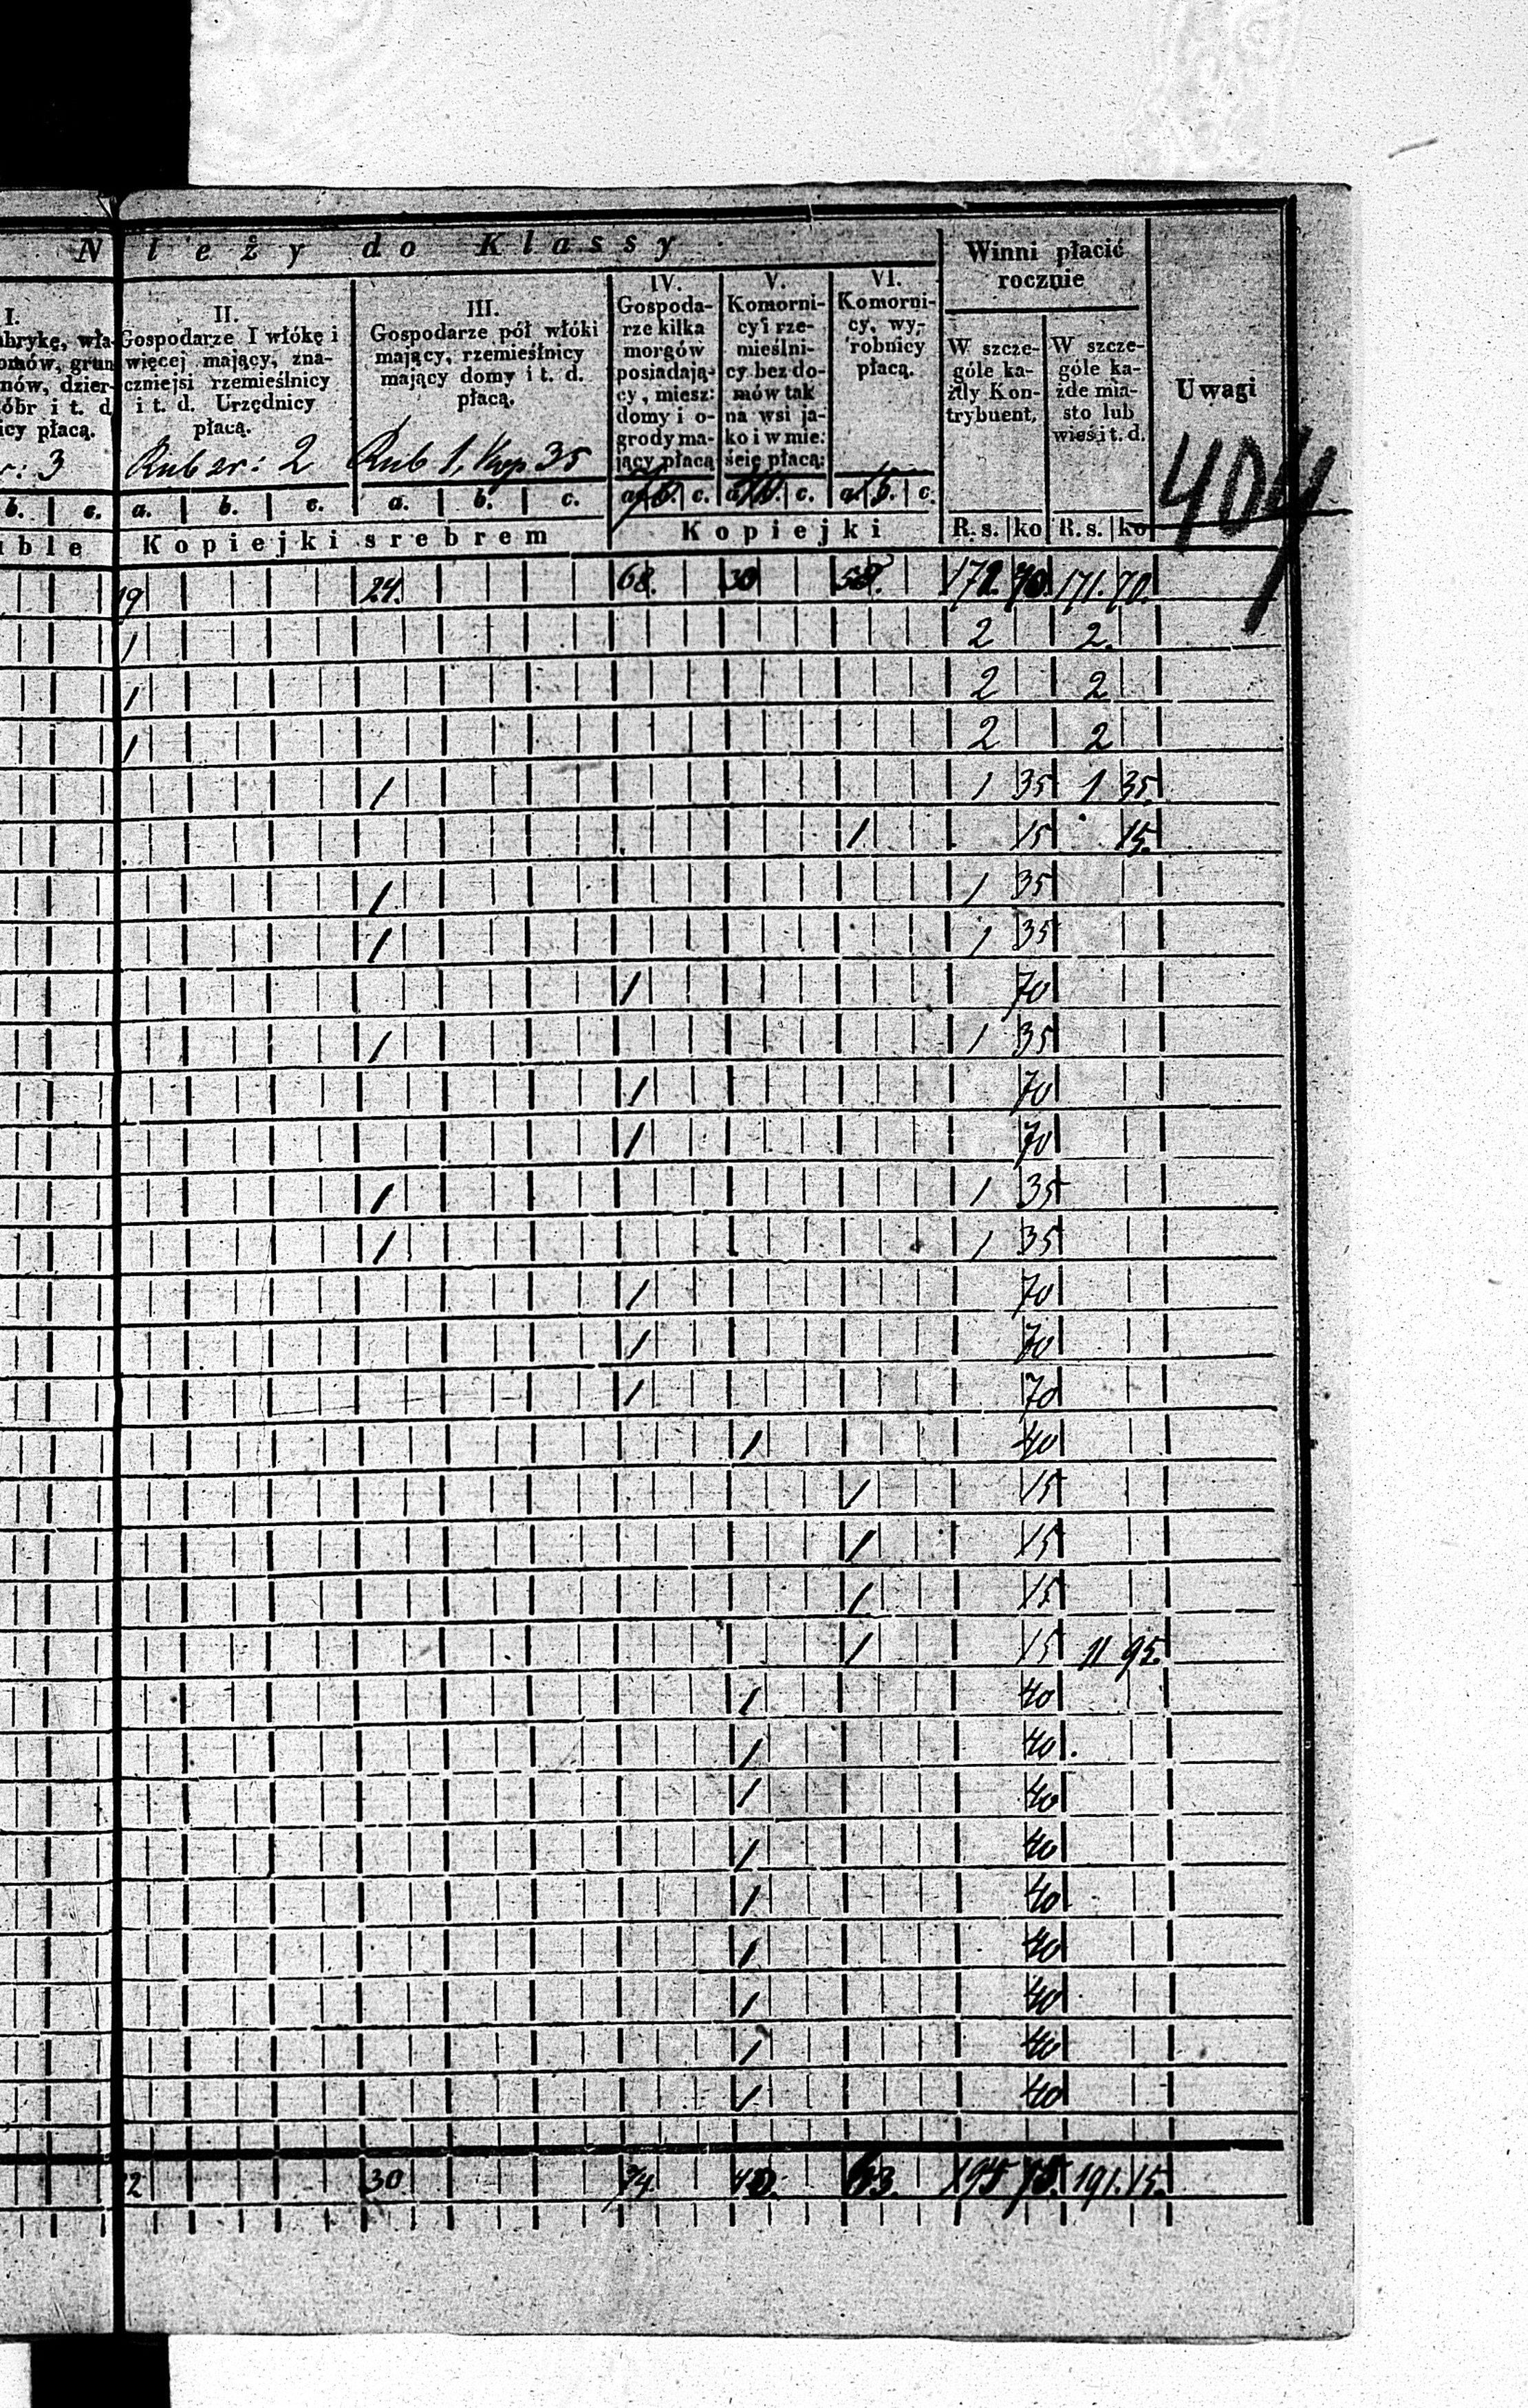 N leży do Klassy
Winni płacić
rocznie
I.
brykę, wła-
omów, grun
nów, dzier-
óbr i t. d
icy płacą.
r: 3
II.
Gospodarze I włókę i
więcej mający, zna-
czniejsi rzemieślnicy
i t. d. Urzędnicy
płacą.
Rub sr: 2
III.
Gospodarze pół włóki
mający, rzemieślnicy
mający domy i t. d.
płacą.
Rub 1, Kop 35
IV.
Gospoda-
rze kilka
morgów
posiadają-
cy, miesz:
domy i o-
grody ma-
jący płacą
V.
Komorni-
cy i rze-
mieślni-
cy bez do-
mów tak
na wsi ja-
ko i w mie:
ście płacą:
VI.
Komorni-
cy, wy-
robnicy
płacą.
W szcze-
góle ka-
żdy Kon-
trybuent,
W szcze-
góle ka-
żde mia-
sto lub
wieś i t. d.
Uwagi
404
b. c. a. b. c. a. b. c. a. b. c. a. b. c. a. b. c.
uble Kopiejki srebrem Kopiejki R. s. ko R. s. ko
19 24. 68. 30 58. 171. 70. 171. 70.
1 2 2.
1 2 2
1 2 2
1 1 35 1 35.
1 15 15.
1 1 35
1 1 35
1 70
1 1 35
1 70
1 70
1 1 35
1 1 35
1 70
1 70
1 70
1 40
1 15
1 15
1 15
1 15 11 95.
1 40
1 40
1 40
1 40
1 40
1 40
1 40
1 40
1 40
22 30 74. 63. 191. 15.